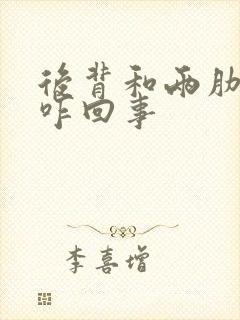 後背和兩肋
咋回事
李喜增